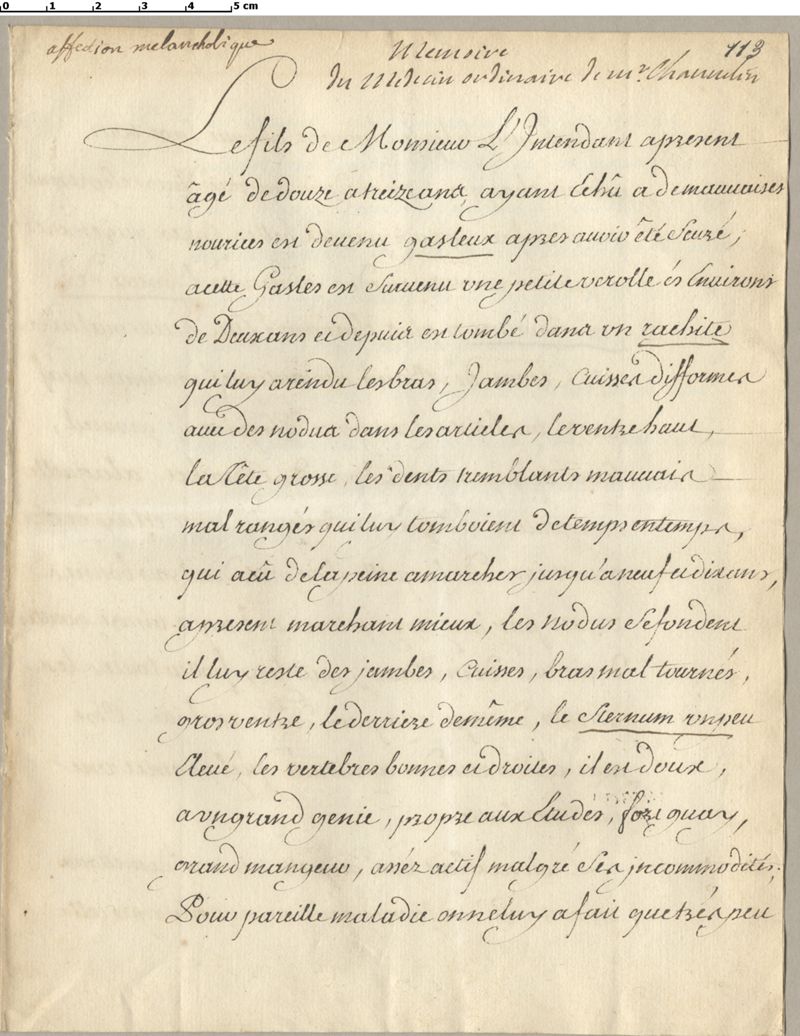 0 1 2 3 4 5 cm
affection melancholique
Memoire
113
du Medecin ordinaire de mr. Chauvelin
Le fils de Monsieur L'Intendant apresent
âgé de douze a treize ans, ayant Echû a de mauvaises
nourices est devenu gasteux apres avoir été Seuré;
a cette Gastes est survenu une petite verolle és Environs
de Deux ans et depuis est tombé dans un rachite
qui luy a rendu les bras, Jambes, cuisses difformes
avec des nodus dans les articles, le ventre haut,
la Tête grosse, les dents tremblants mauvais
mal rangés qui luy tomboient de temps en temps,
qui a eû de la peine a marcher jusqu'a neuf et dix ans,
apresent marchant mieux, les nodus se fondent
il luy reste des jambes, cuisses, bras mal tournés,
gros ventre, le derriere de même, le Sternum un peu
Elevé, les vertebres bonnes et droites, il est doux,
a un grand genie, propre aux Etudes, fort guay,
grand mangeur, assez actif malgré ses jncommodités;
Pour pareille maladie on ne luy a fait que trés peu